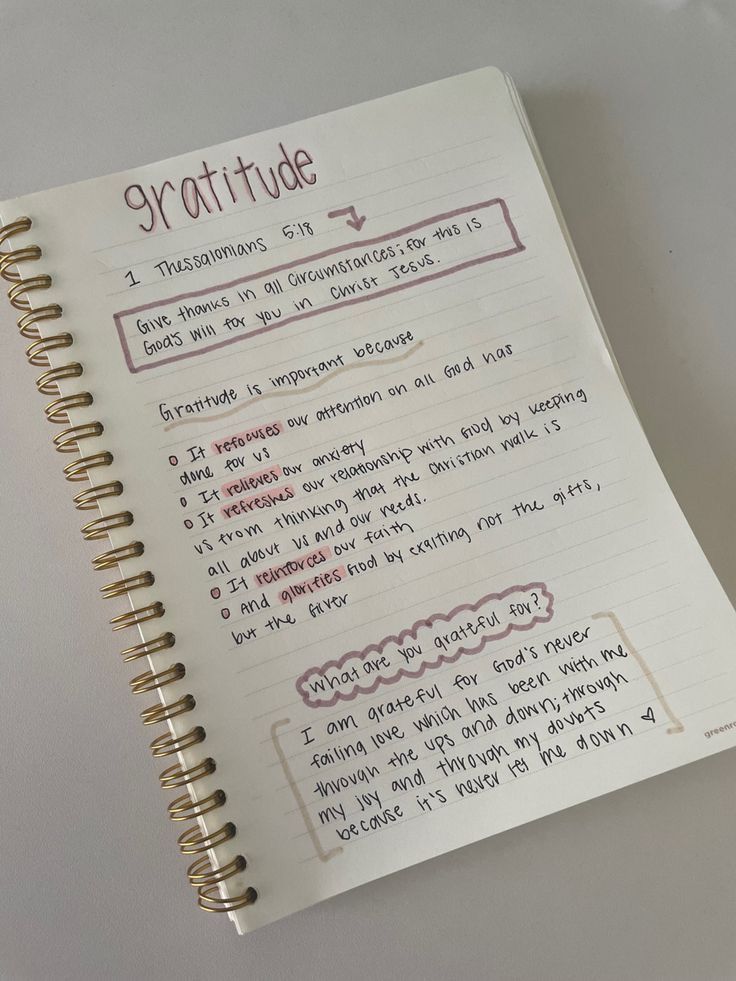 gratitude
1 Thessalonians 5:18
Give thanks in all circumstances; for this is
God's will for you in Christ Jesus.
Gratitude is important because
It refocuses our attention on all God has
done for us
It relieves our anxiety
It refreshes our relationship with God by keeping
us from thinking that the Christian walk is
all about us and our needs.
It reinforces our faith
And glorifies God by exalting not the gifts,
but the Giver
What are you grateful for?
I am grateful for God's never
failing love which has been with me
through the ups and down; through
my joy and through my doubts
because it's never let me down